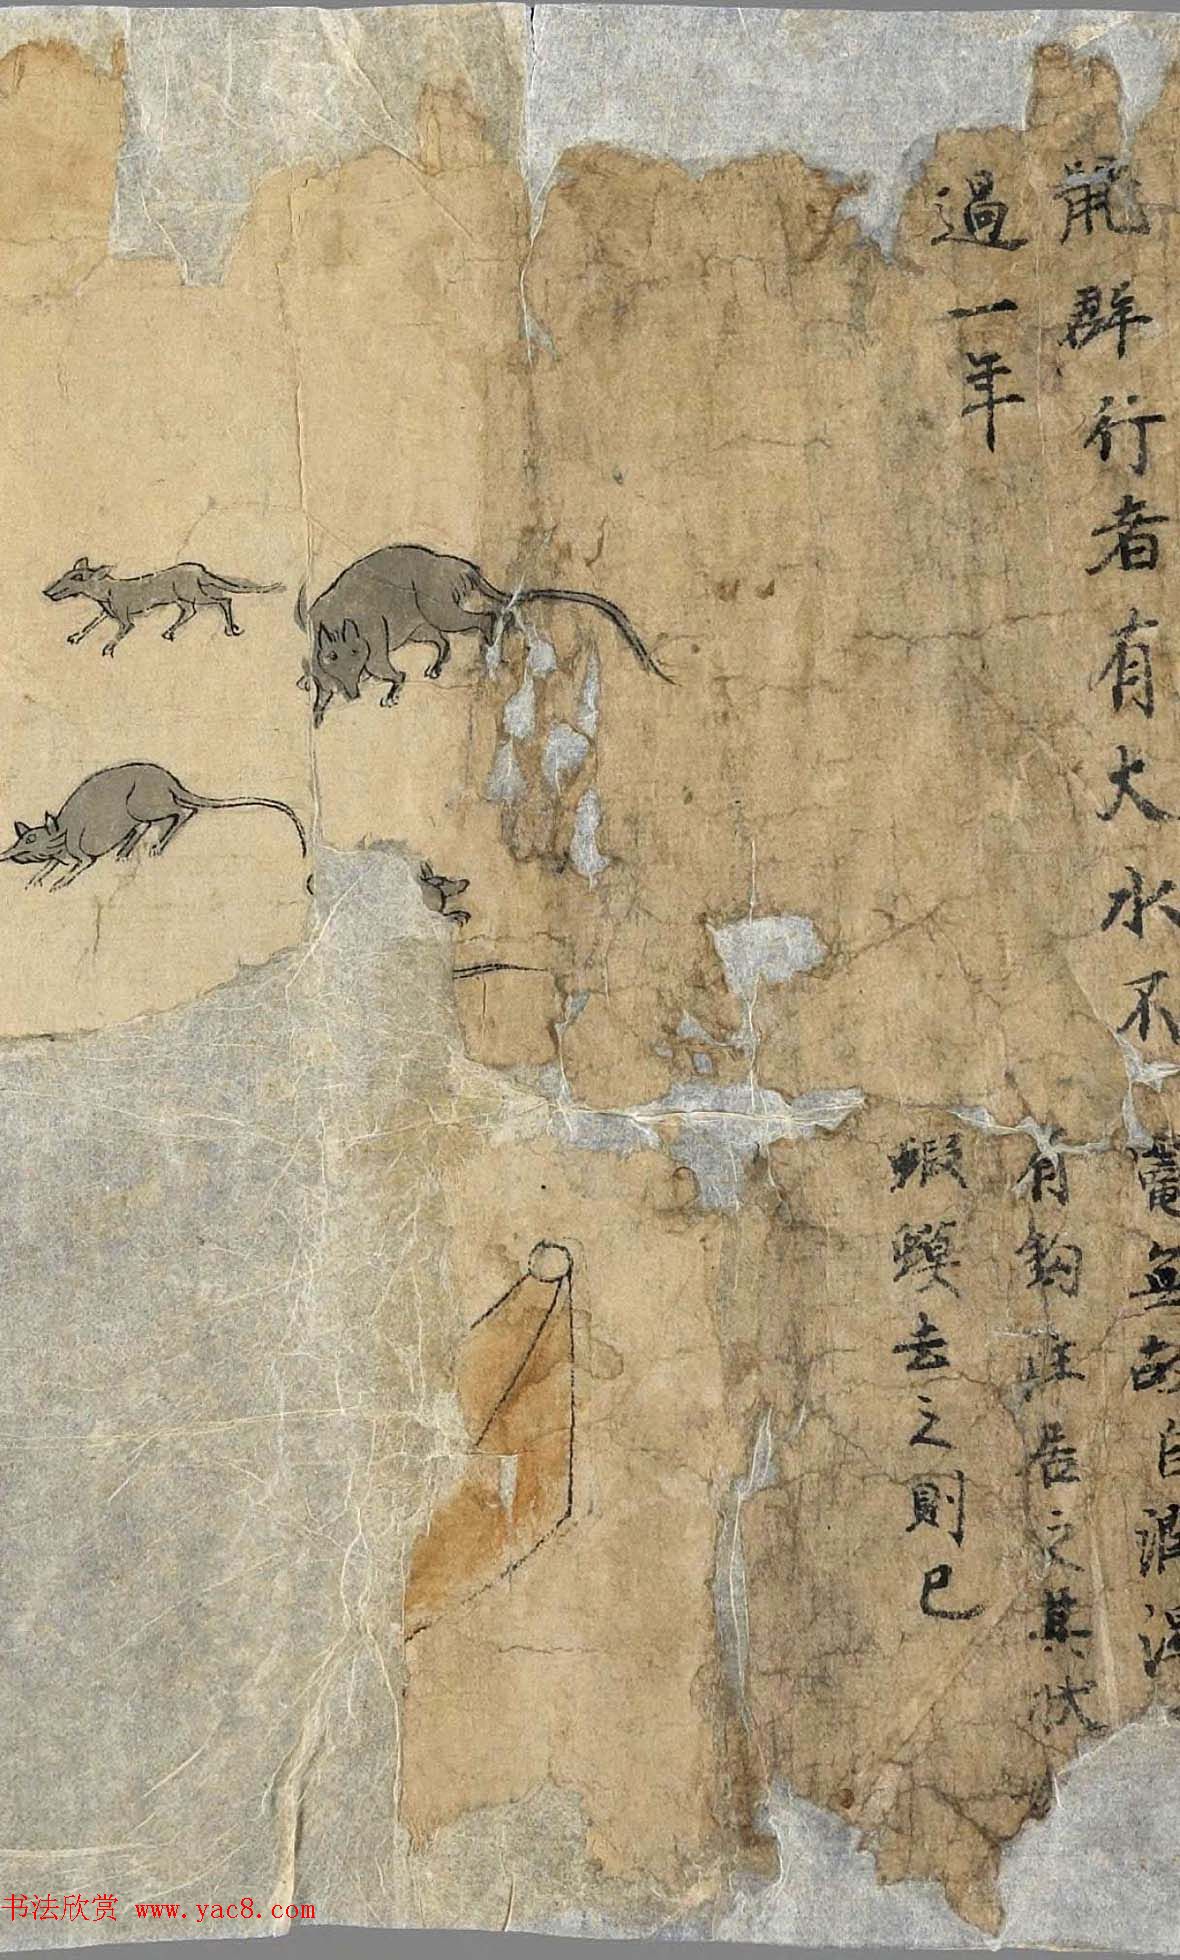 鼠群行者有大水不
過一年
竈無故自濕
有鈎注居之其狀
蝦蟆去之則已
书法欣赏 www.yac8.com